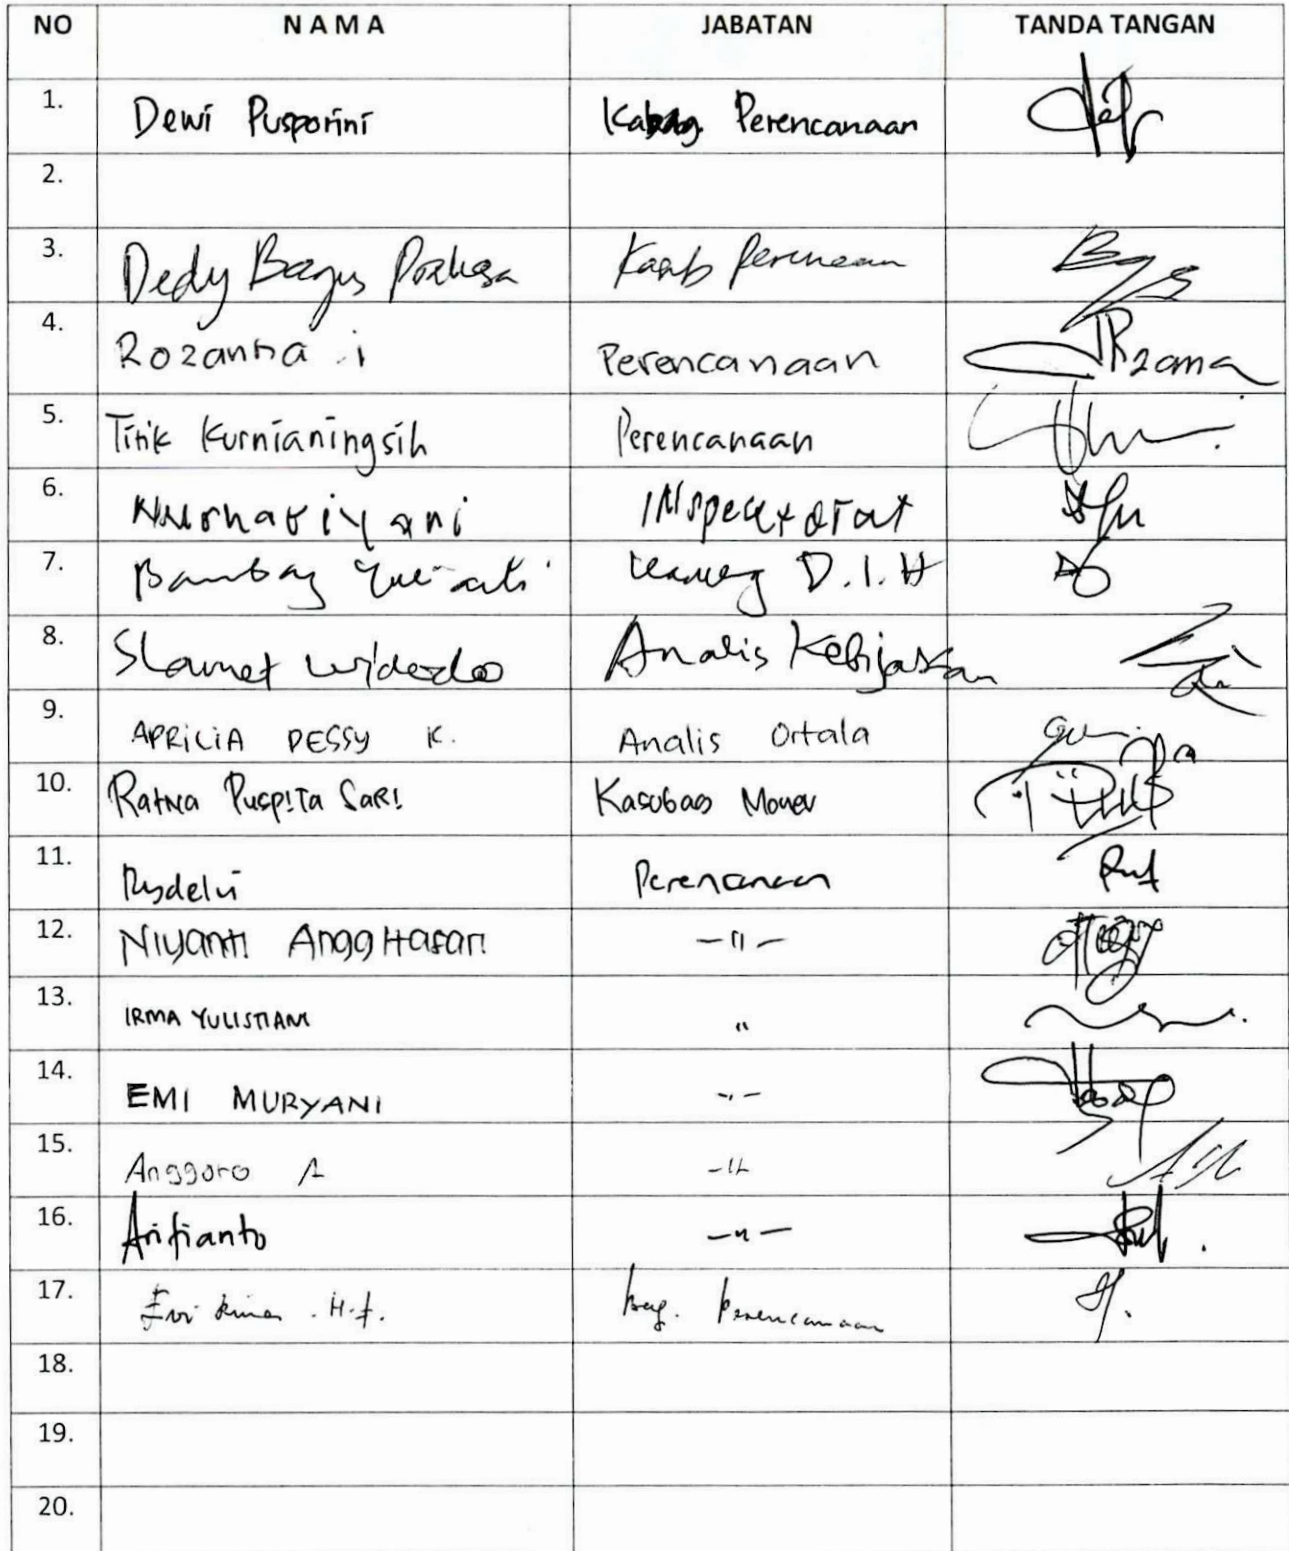 NO NAMA JABATAN TANDA TANGAN
1. Dewi Pusporini Kabag. Perencanaan
2.
3. Dedy Bagus
4. Rozanna i Perencanaan
5. Titik Kurnianingsih Perencanaan
6. Inspektorat
7. Bambang D.I.H
8. Slamet Widodo Analis Kebijakan
9. APRILIA DESSY K. Analis Ortala
10. Ratna Puspita Sari Kasubag Monev
11. Perencanaan
12. Niyanti Anggitasari -"-
13. IRMA YULISTIANI "
14. EMI MURYANI -"-
15. Anggoro A -"-
16. Arifianto -"-
17. H.F. Bag. Perencanaan
18.
19.
20.